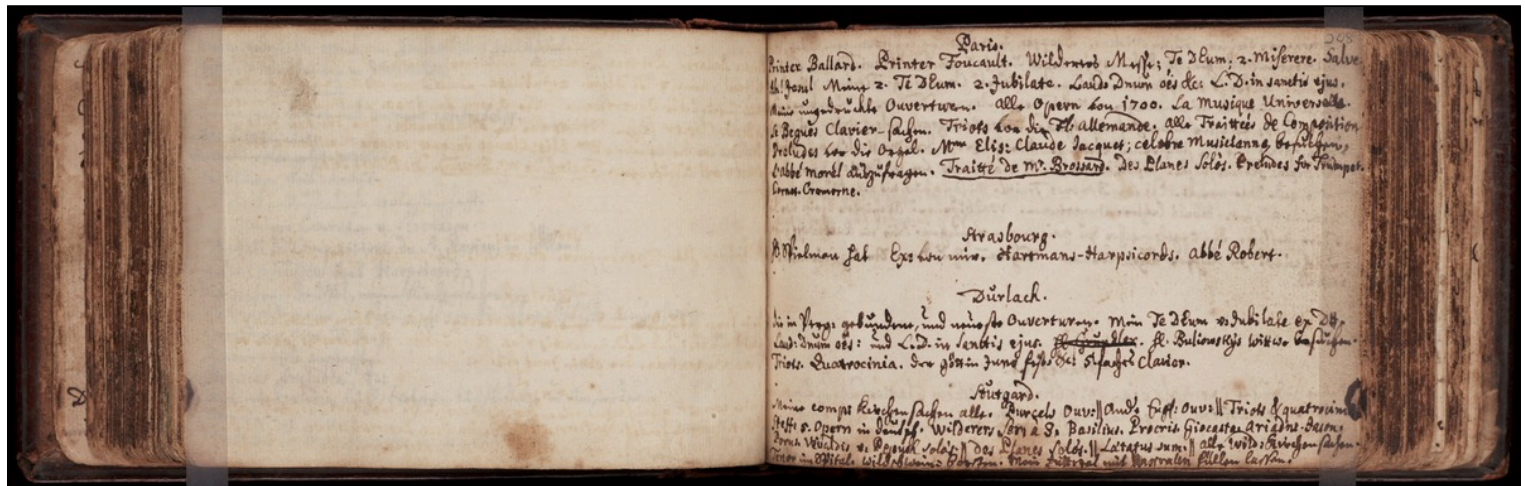 Paris.
Printer Ballard. Printer Foucault. Wilderers Messe; Te DEum; 2. Miserere. Salve
Meine 2. Te DEum. 2. Jubilate. Laudo Dnum oēs &c. L. D. in sanctis ejus.
ungedruckte Ouverturen. alle Opern von 1700. La Musique Universelle.
le Begues Clavier-sachen. Triots von die Allemande. alle Traittées de Composition
Preludes vor die Orgel. Elis: Claude Jacquet; celebre Musicienne, besuchen,
L'abbé Morel auszufragen. Traitté de Mr. Brossard. Des Planes Solos. Preludes for Trumpet.
Cornet. Cromorne.
Strasbourg.
Spielman hat Ex: von mir. Hartmans-Harpsicords. Abbé Robert.
Durlach.
die in gebundene, und neueste Ouverturen. Mein Te DEum v. Jubilate ex D
Laud: Dnum oēs: und L. D. in sanctis ejus. Buliowskys witwe besuchen.
Triots. Quatrocinia. der göttin Juno &c: 5 faches Clavier.
Stutgard.
Meine comps Kirchen sachen alle. Purcels Ouv: || And. Ouv: || Triots & quatrocinia
5. Opern in Wilderers à 3. Basilius. Procris Giocasta Ariadne. Jason.
Vivaldis v. Pepusch solos. || Des Planes solos. || Lætatus sum. || alle Wild: Kirchen sachen.
Tenor im Spital. Mein mit füllen lassen.